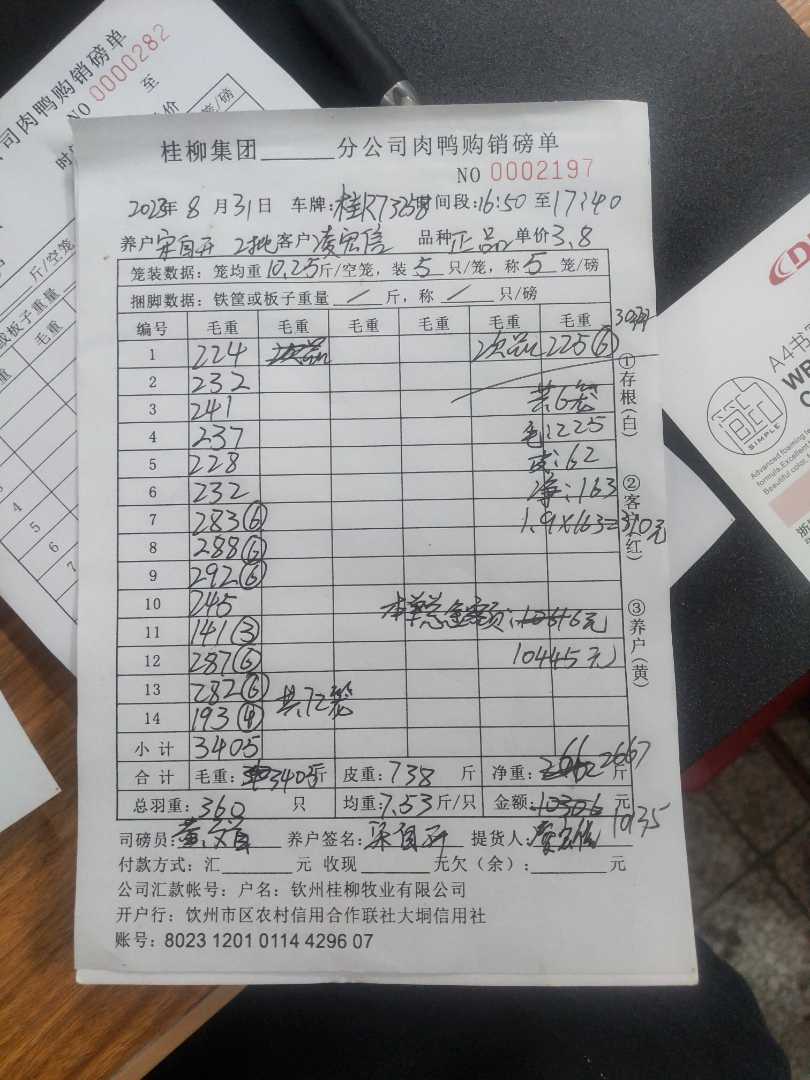 司肉鸭购销磅单
NO 0000282
桂柳集团______分公司肉鸭购销磅单
NO 0002197
2023年 8 月 31日 车牌:桂R73258 时间段:16:50 至17:40
养户 宋自开 2批 客户 凌宏信 品种 正品 单价 3.8
笼装数据: 笼均重 10.25 斤/空笼, 装 5 只/笼, 称 5 笼/磅
捆脚数据: 铁筐或板子重量 / 斤, 称 / 只/磅
编号 毛重 毛重 毛重 毛重 毛重 毛重 30只
1 224 次品 次品 225⑥
2 232
3 241 共6笼
4 237 毛:225
5 228 皮:62
6 232 净:163
7 283⑥ 1.9×163=310元
8 288⑥
9 292⑥
10 245 本单总金额:10616元
11 141③
12 287⑥ 10445元
13 282⑥ 共72笼
14 193④
小计 3405
合计 毛重: 3405斤 皮重: 738 斤 净重: 2662 2667 斤
总羽重: 360 只 均重: 7.53 斤/只 金额: 10306 元 10135
司磅员: 养户签名: 宋自开 提货人:
付款方式: 汇______元 收现______元欠(余):______元
公司汇款帐号: 户名: 钦州桂柳牧业有限公司
开户行: 钦州市区农村信用合作联社大垌信用社
账号: 8023 1201 0114 4296 07
①存根(白)
②客户(红)
③养户(黄)
斤/空笼
毛重
4
5
6
7
A4书
SIMPLE
Advanced foaming te
formula,Excellent
Beautiful color,